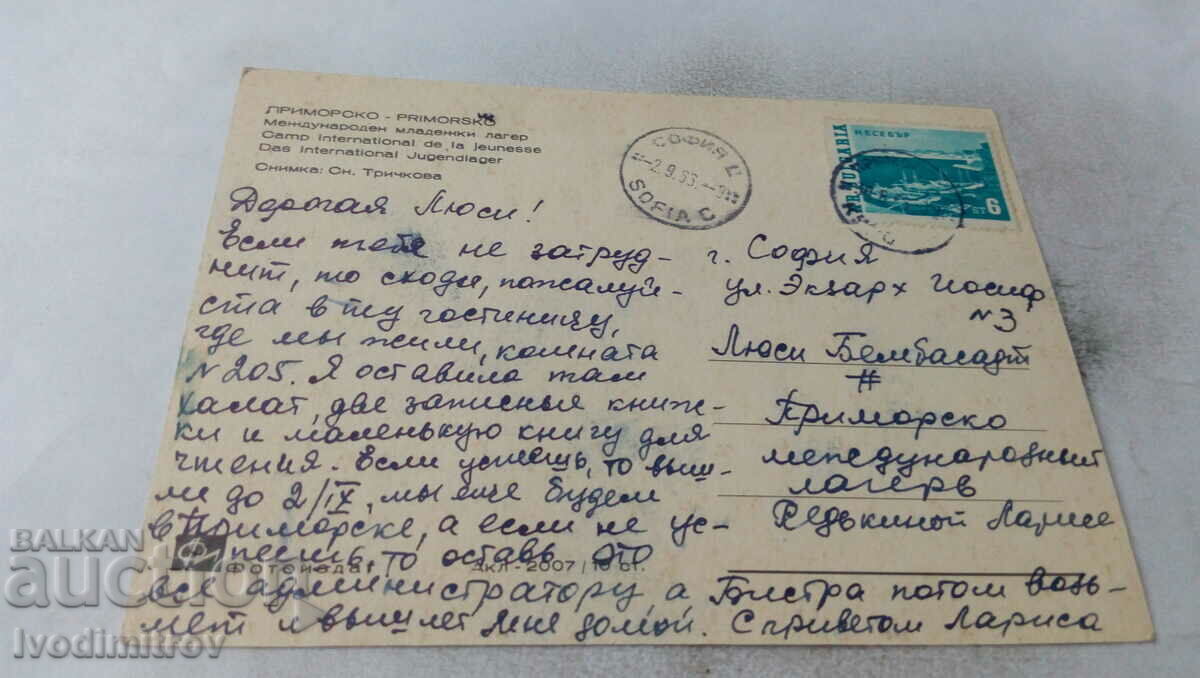 ПРИМОРСКО - PRIMORSKO
Международен младежки лагер
Camp International de la Jeunesse
Das International Jugendlager
Снимка: Сн. Тричкова
СОФИЯ Ц
2.9.63
SOFIA C
НЕСЕБЪР
BULGARIA
6 СТ
Дорогая Люси!
Если тебя не затруд-
нит, то сходи, пожалуй-
ста в ту гостиницу,
где мы жили, комната
N 205. Я оставила там
халат, две записные книж-
ки и маленькую книгу для
чтения. Если успеешь, то выш-
ли до 2/IX, мы еще будем
в Приморске, а если не ус-
пеешь, то оставь это
все администратору а Бистра потом возь-
мет и вышлет мне домой. С приветом Лариса
г. София
ул. Экзарх Иосиф
N 3
Люси Бембасадт
#
Приморско
международный
лагерь
Редькиной Ларисе
Фотоиздат
Акл-2007 / 10 ст.
BALKAN
auction
Ivodimitrov